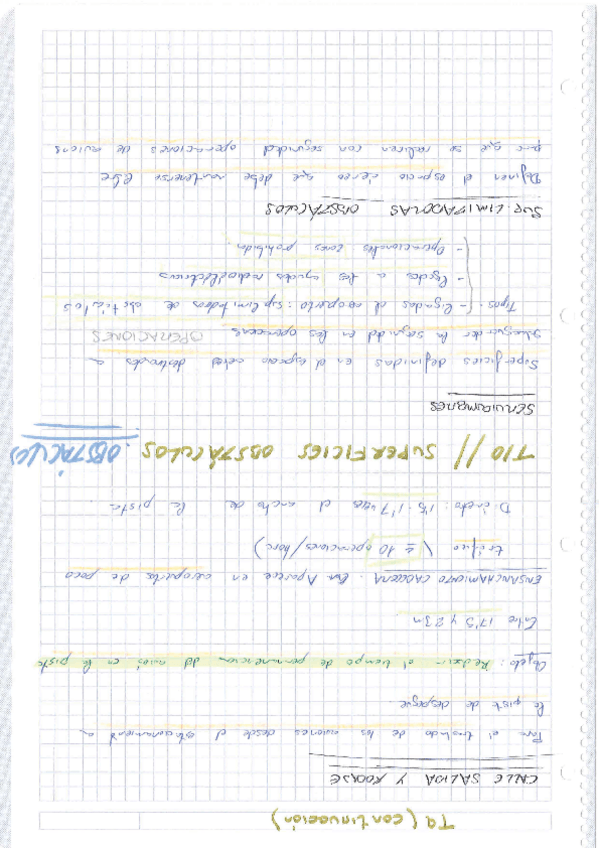 T9 (continuación)
CALLE SALIDA Y RODAJE
Para el traslado de los aviones desde el estacionamient a
la pista de despegue
Objeto: Reducir el tiempo de permanencia del avión en la pista
Entre 17'5 y 23m
ENSANCHAMIENTO CABECERA. Aparece en aeropuerto de poco
tráfico (≤ 10 operaciones/hora)
Diámetro: 1'5 - 1'7 veces el ancho de la pista
T10 // SUPERFICIES OBSTÁCULOS. OBSTÁCULOS
SERVIDUMBRES
Superficies definidas en el espacio aéreo destinadas a
salvaguardar la seguridad en las operaciones OPERACIONES
Tipos. - Ligadas al aeropuerto: sup. limitadoras de obstáculos
- Ligadas a las ayudas radioeléctricas
- Operacionales zonas prohibidas.
SUP. LIMITADORAS OBSTÁCULOS
Definen el espacio aéreo que debe mantenerse libre
para que se realicen con seguridad operaciones de aviones